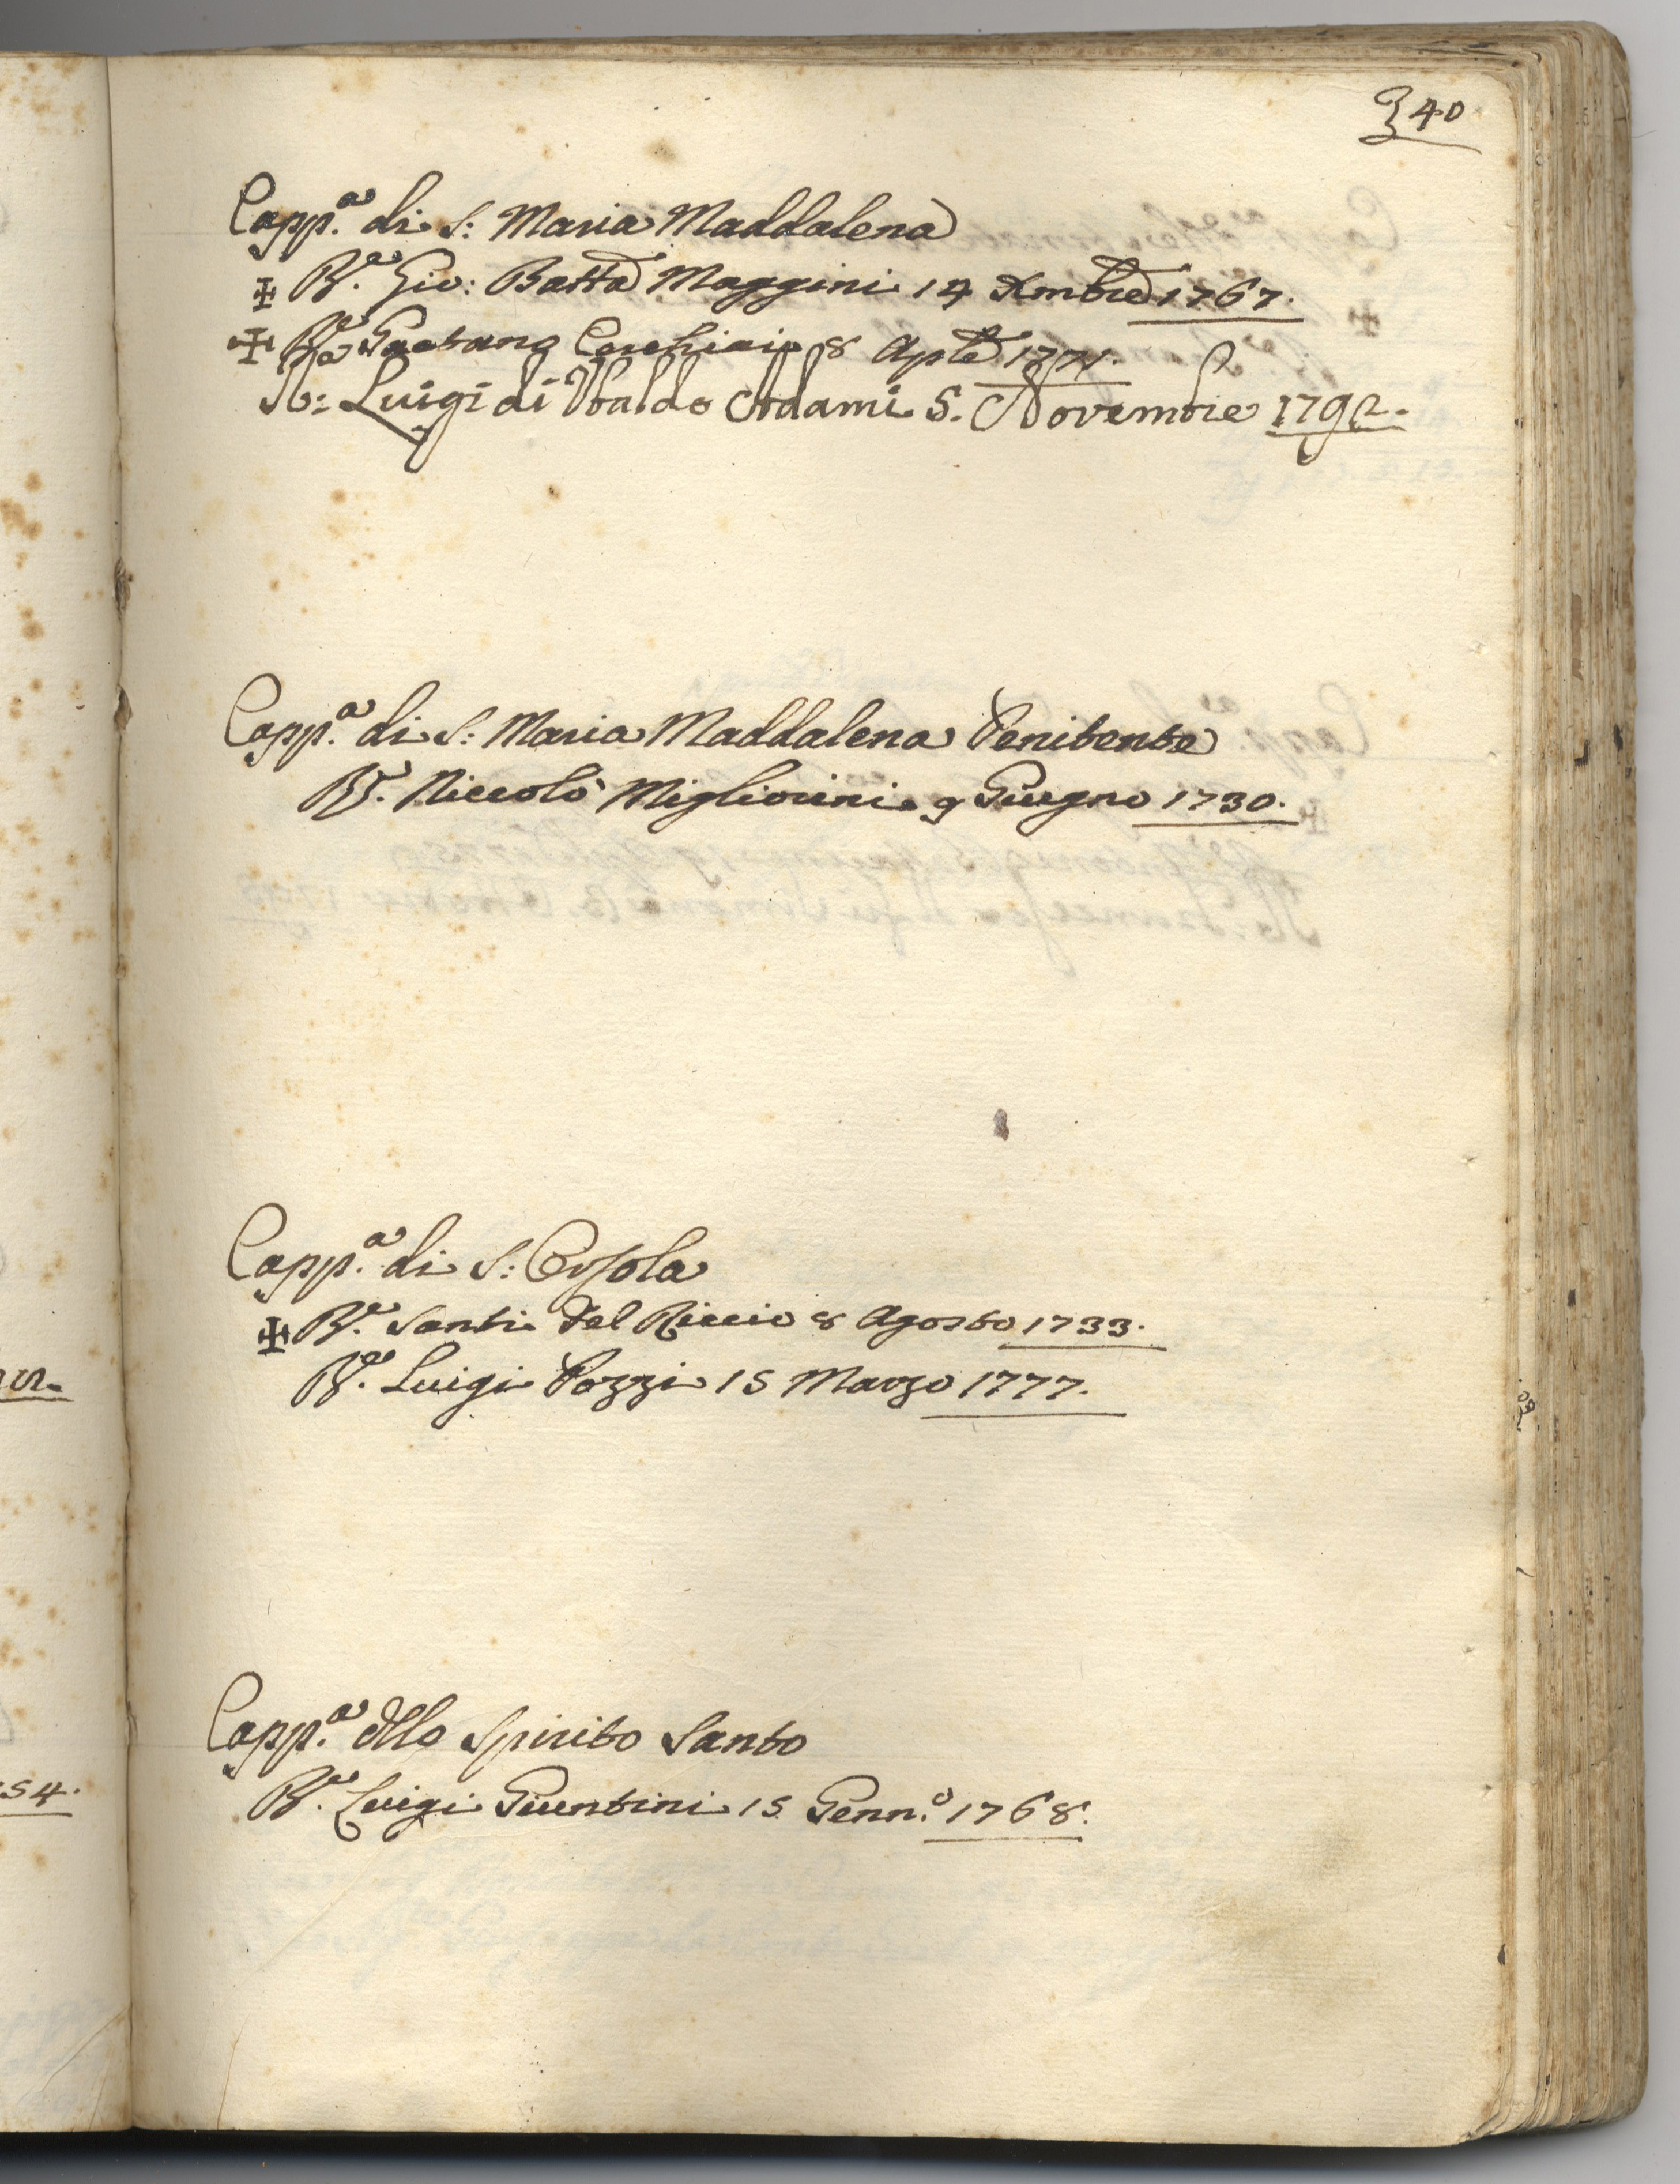 340
Capp.a di S: Maria Maddalena
✠ R.e Gio: Batta Maggini 14 Xmbre 1767.
✠ R.e Gaetano Cecchini 8 Aple 1771.
Re: Luigi di Ubaldo Adami 5. Novembre 1792.
Capp.a di S: Maria Maddalena Penitente
R.e Niccolò Migliorini 9 Giugno 1730.
Capp.a di S: Orsola
✠ R.e Santi Del Riccio 8 Agosto 1733.
R.e Luigi Pozzi 15 Marzo 1777.
Capp.a dllo Spirito Santo
R.e Luigi Giuntini 15 Genn.o 1768.
54.